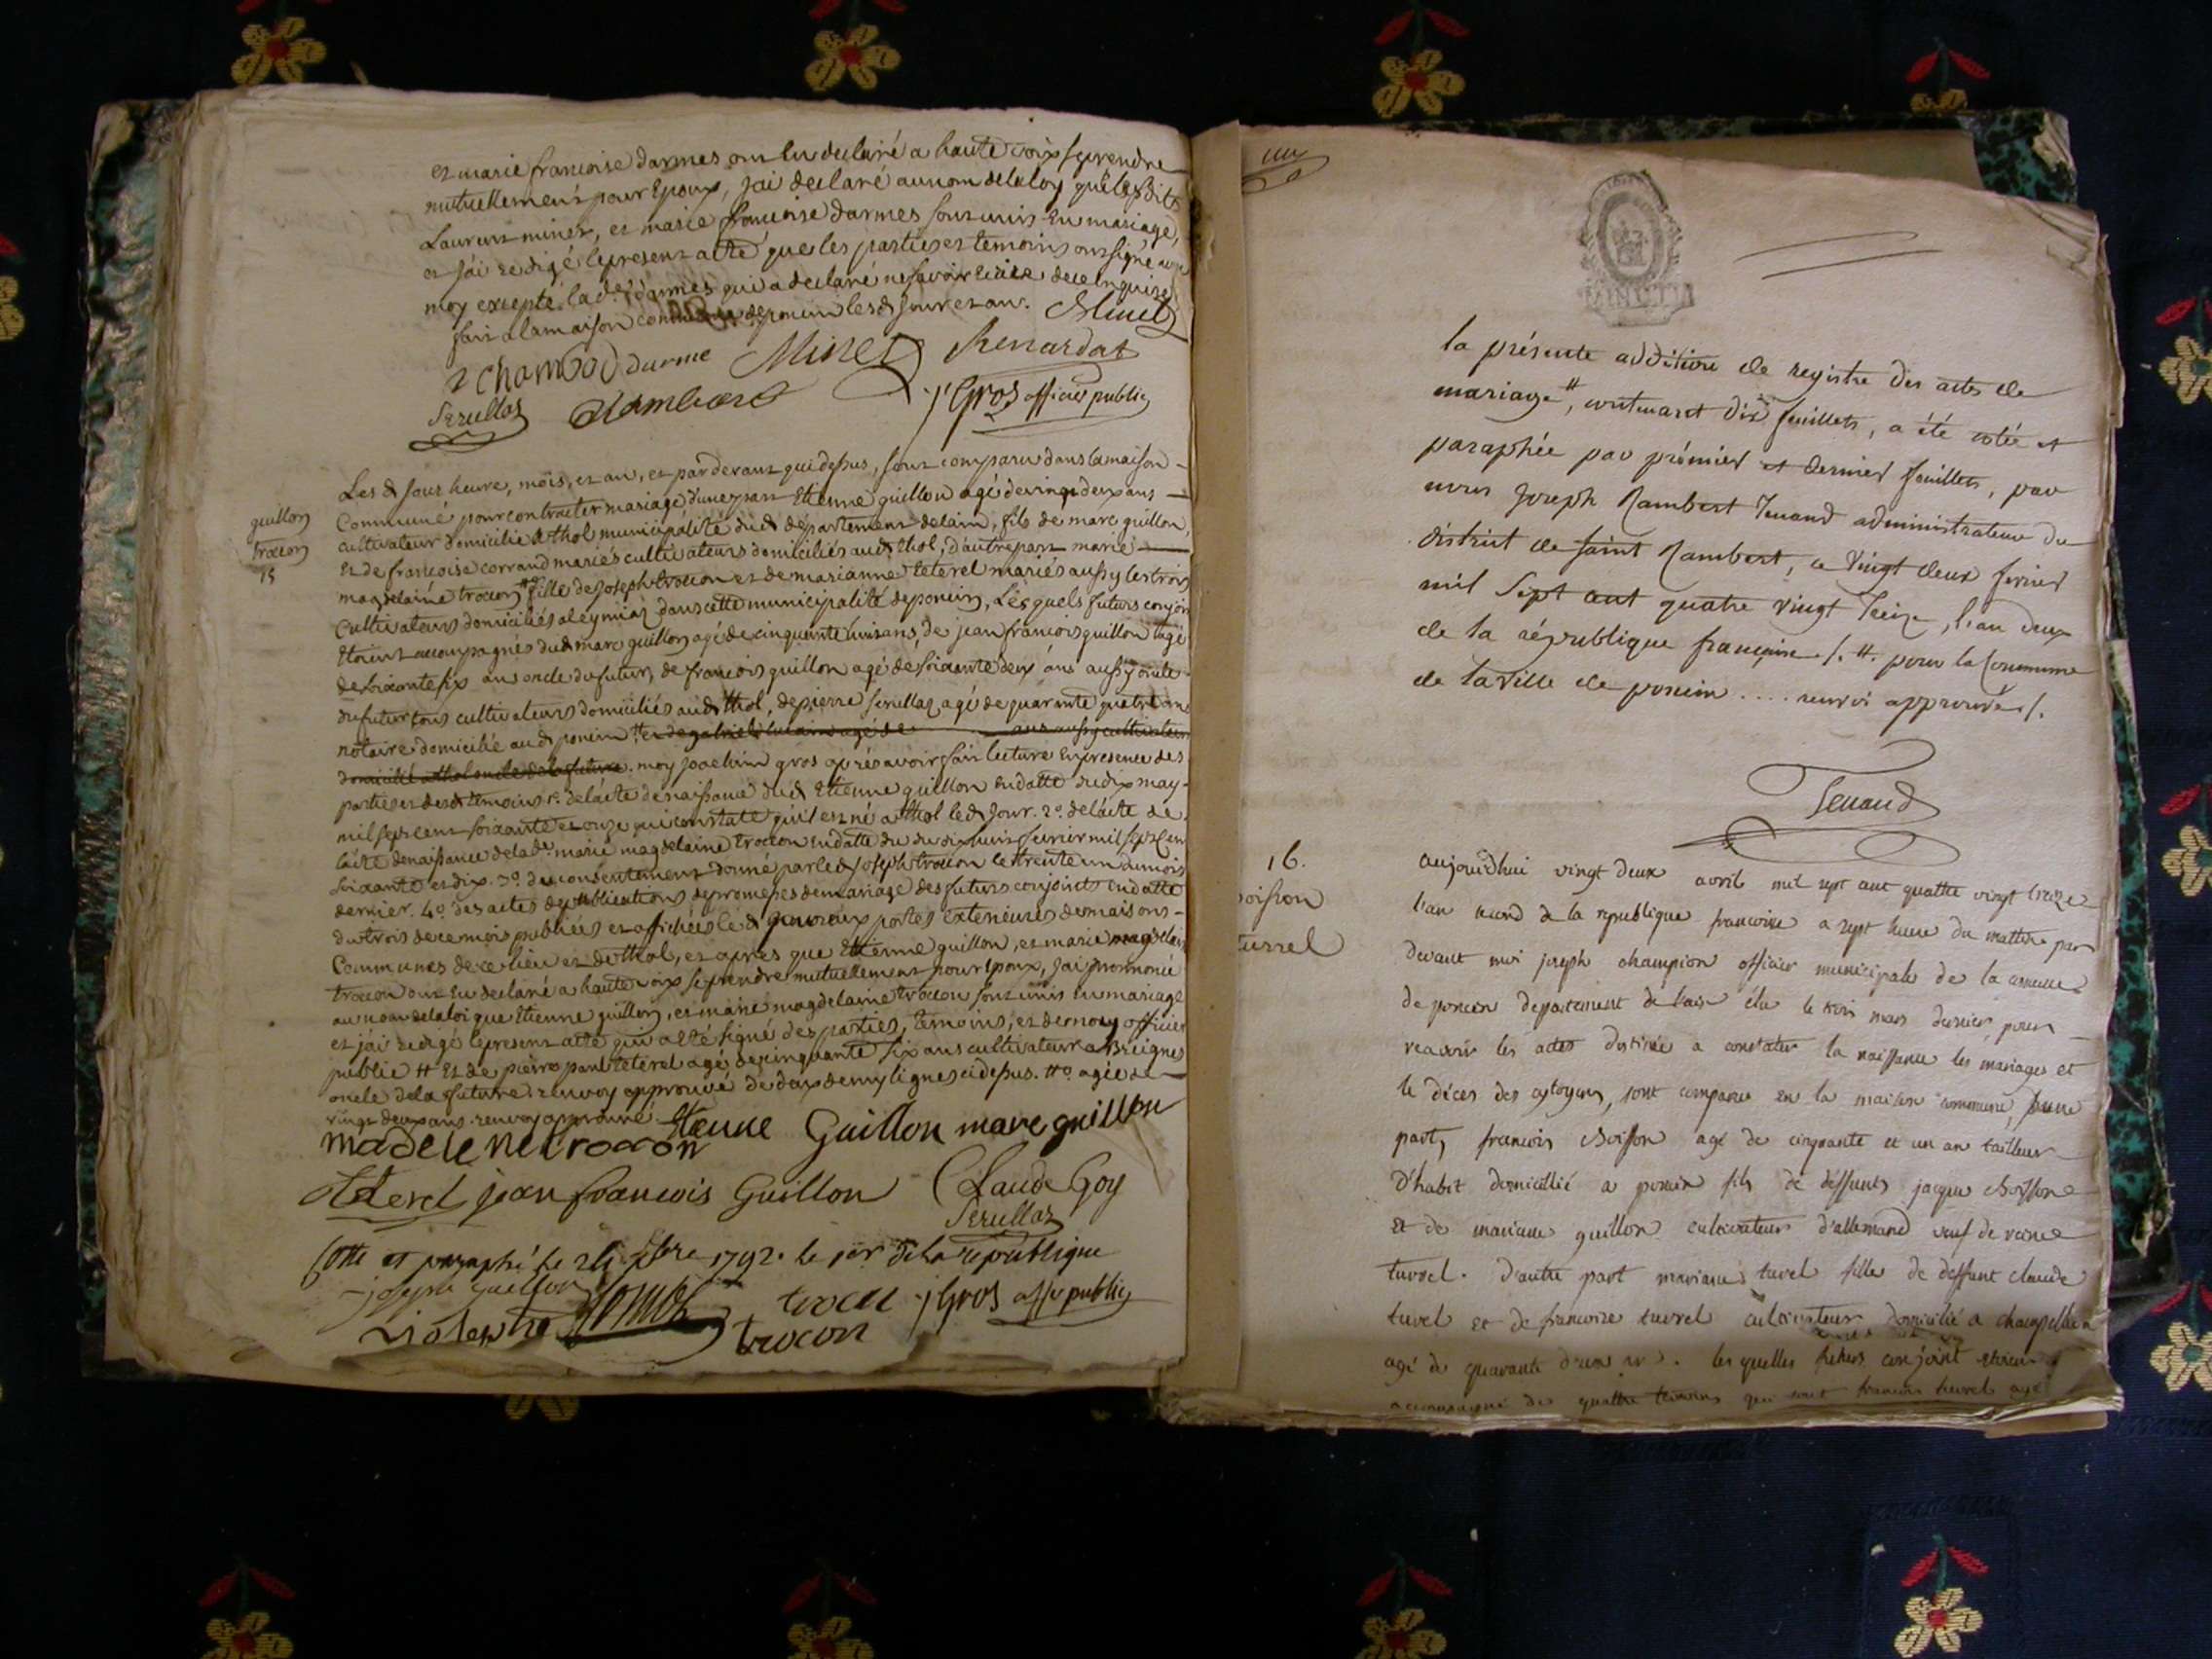 et marie francoise darmes ont eu declaré a haute voix se prendre
mutuellement pour Epoux, jai declaré au nom de la loy que lesdits
Laurent minet, et marie francoise darmes sont unis en mariage,
et jai redigé le present acte que les parties et temoins ont signé avec
moy excepté lade. darmes qui a declaré ne savoir de ce enquise
fait a la maison commune de poncin lesd. jour et an. Minet
chambod darme Minet Renardat
Serullaz Chambard j Gros officier public
Les d. jour heure, mois, et an, et pardevant qui dessus, sont comparu dans la maison
Commune pour contracter mariage d'une part Etienne guillon agé de vingt deux ans
guillon
trocon
15
cultivateur domicilié a thol municipalité dud. departement de lain, fils de marc guillon,
et de francoise corrand mariés cultivateurs domiciliés aud. thol, d'autre part marie
magdelaine trocon # fille de joseph trocon et de marianne teterel mariés aussy les trois
cultivateurs domiciliés a leymiaz dans cette municipalité de poncin, Lesquels futurs conjoints
Etoient accompagnés dud. marc guillon agé de cinquante huit ans, de jean francois guillon agé
de soixante six ans oncle du futur, de francois guillon agé de soixante deux ans aussy oncle
du futur tous cultivateurs domiciliés aud. thol, de pierre serullaz agé de quarante quatre ans
notaire domicilié aud. poncin # et de agé de ans aussy cultivateur
domicilié a thol oncle de la future. moy joachim gros après avoir fait lecture en presence des
parties et desd. temoins 1° de l'acte de naissance dud. Etienne guillon en datte du dix may
mil sept cent soixante et onze qui constate qu'il est né a thol led. jour. 2° de l'acte de
l'acte de naissance de lade. marie magdelaine trocon en datte du du dix huit fevrier mil sept cent
soixante et dix. 3° du consentement donné par led. joseph trocon le trente un du mois
dernier. 4° des actes de publications de promesses de mariage des futurs conjoints en datte
du trois de ce mois publiées et affichées led. jour aux portes exterieures des maisons
Communes de ce lieu et de thol, et apres que Etienne guillon, et marie magdelaine
trocon ont eu declaré a haute voix se prendre mutuellement pour epoux, jai prononcé
au nom de la loi que Etienne guillon, et marie magdelaine trocon sont unis en mariage
et jai redigé le present acte qui a été signé des parties, temoins, et de moy officier
public # Et de pierre paul teterel agé de cinquante six ans cultivateur a
oncle de la future. renvoy approuvé de deux demy lignes ci dessus. #° agée de
vingt deux ans. renvoy approuvé. Etienne Guillon marc guillon
madelene trocon
teterel jean francois Guillon Claude Goy
Serullaz
Cotté et paraphé le 24 bre 1792. le 1er de la republique
joseph guillon trocon j Gros offer public
trocon
la présente addition de registre des actes de
mariage #, contenant dix feuillets, a été cotée et
paraphée par prémier et dernier feuillets, par
nous Joseph Rambert Tenand administrateur du
district de saint Rambert, ce vingt deux fevrier
mil sept cent quatre vingt treize, l'an deux
de la république françoise ./. #. pour la Commune
de la ville de poncin .... renvoi approuvé ./.
Tenand
16.
boisson
turrel
aujourd'hui vingt deux avril mil sept cent quattre vingt treize
l'an second de la republique francoise a sept heure du mattin par
devant moi joseph champion officier municipale de la commune
de poncin departement de lain élu le trois mars dernier pour
recevoir les actes destinée a constater la naissance les mariages et
le déces des cytoyens, sont comparu en la maison commune, dune
part, francois Boisson agé de cinquante et un an tailleur
d'habit domicillié a poncin fils de deffunts jacque Boisson
et de marianne guillon cultivateur d'allemand veuf de reine
turrel. D'autre part marianne turel fille de deffunt claude
turel et de francoise turrel cultivateur domicilié a
agé de quarante deux ans. les quelles futurs conjoint etoient
accompagné de quattre temoins qui sont francois turrel agé